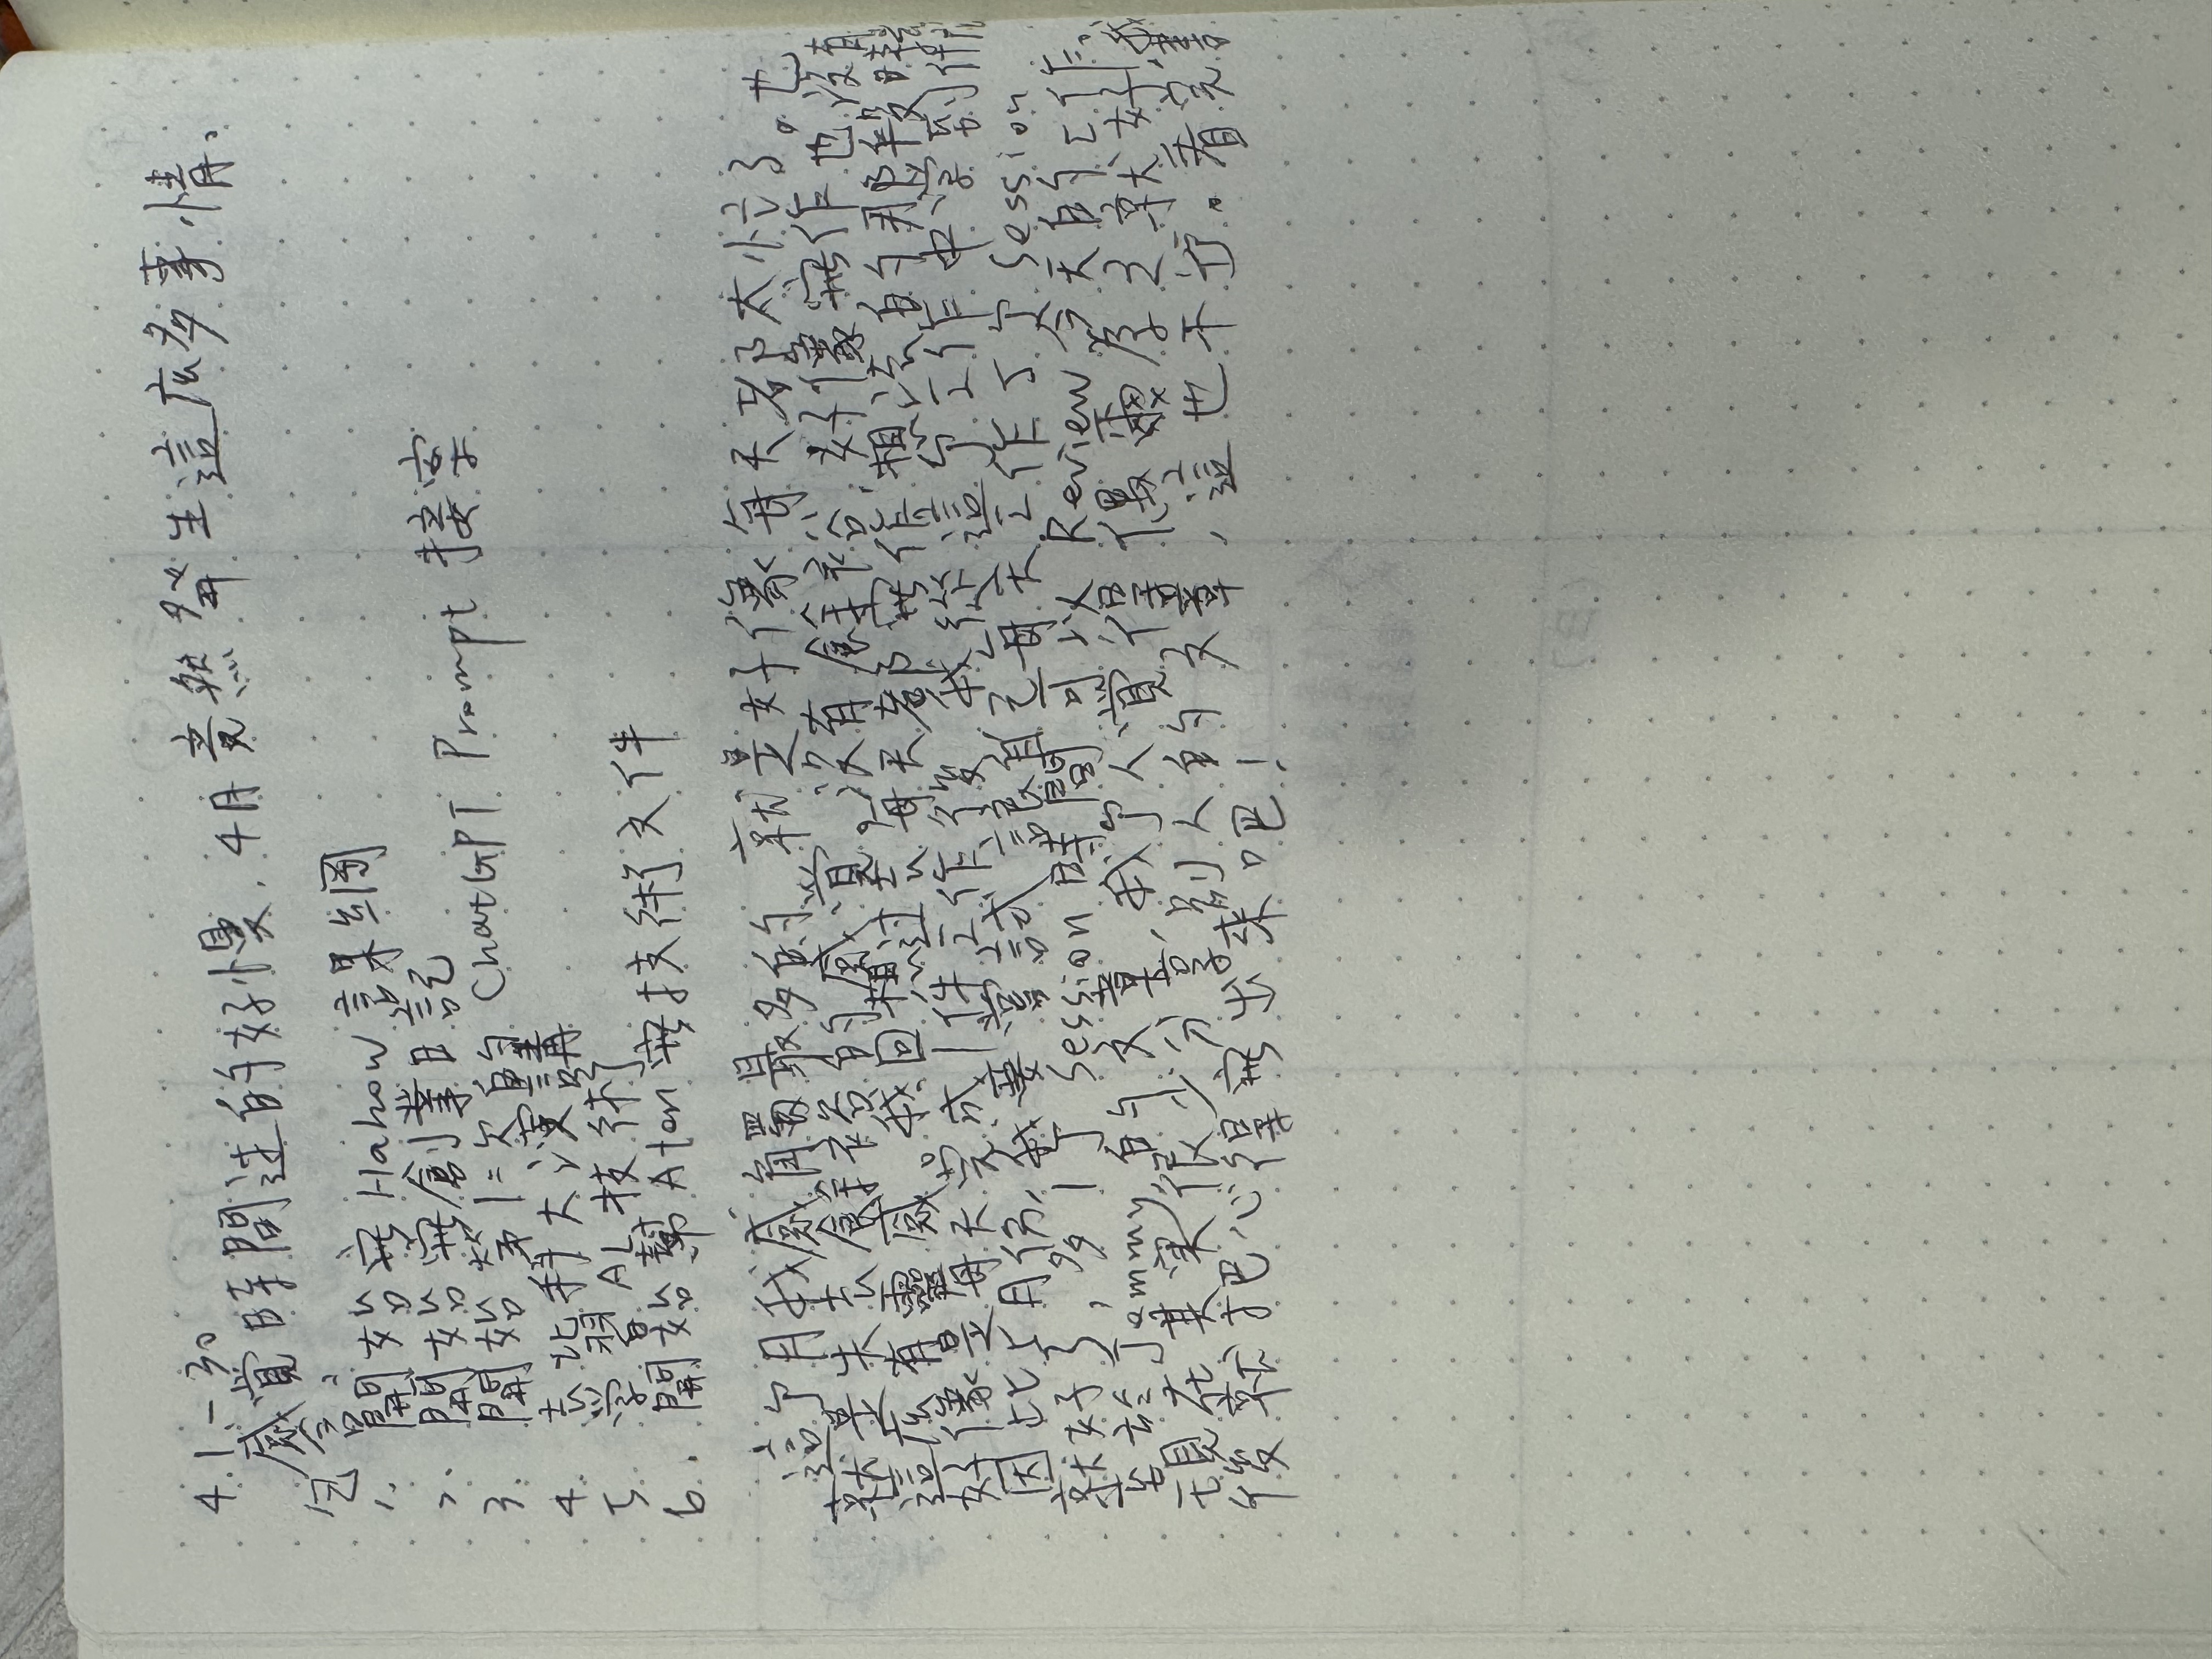 4.1-30
感覺時間过的好慢,4月竟然發生這広多事情。
包含:
1. 開始寫Hahow課綱
2. 開始寫創業日記
3. 開始第1次的ChatGPT Prompt接案
4. 去北科大演講
5. 学習AI技術
6. 開始幫Aten寫技術文件
這个月我感觸最多的,就是好像每天都太忙了。也
就是失去餘裕的感覺。沒有餘裕,好像寫作也沒有
這広有靈感。我回想过去每天都寫作想法的那段時
好像是每天完成1件工作後,我從這个工作中学到什広
因此5月份,我要嘗試讓自己每天工作5个Session
就好了,多1个Session時間可以Review今天的工作。
至於Jommy的文章,我个人覺得偶爾為之就好,我
現在其実很少分享別人的文章,這也不行。看完書
後就把心得寫出來吧!